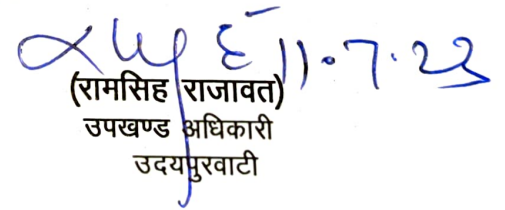 11.7.23
(रामसिह राजावत)
उपखण्ड अधिकारी
उदयपुरवाटी